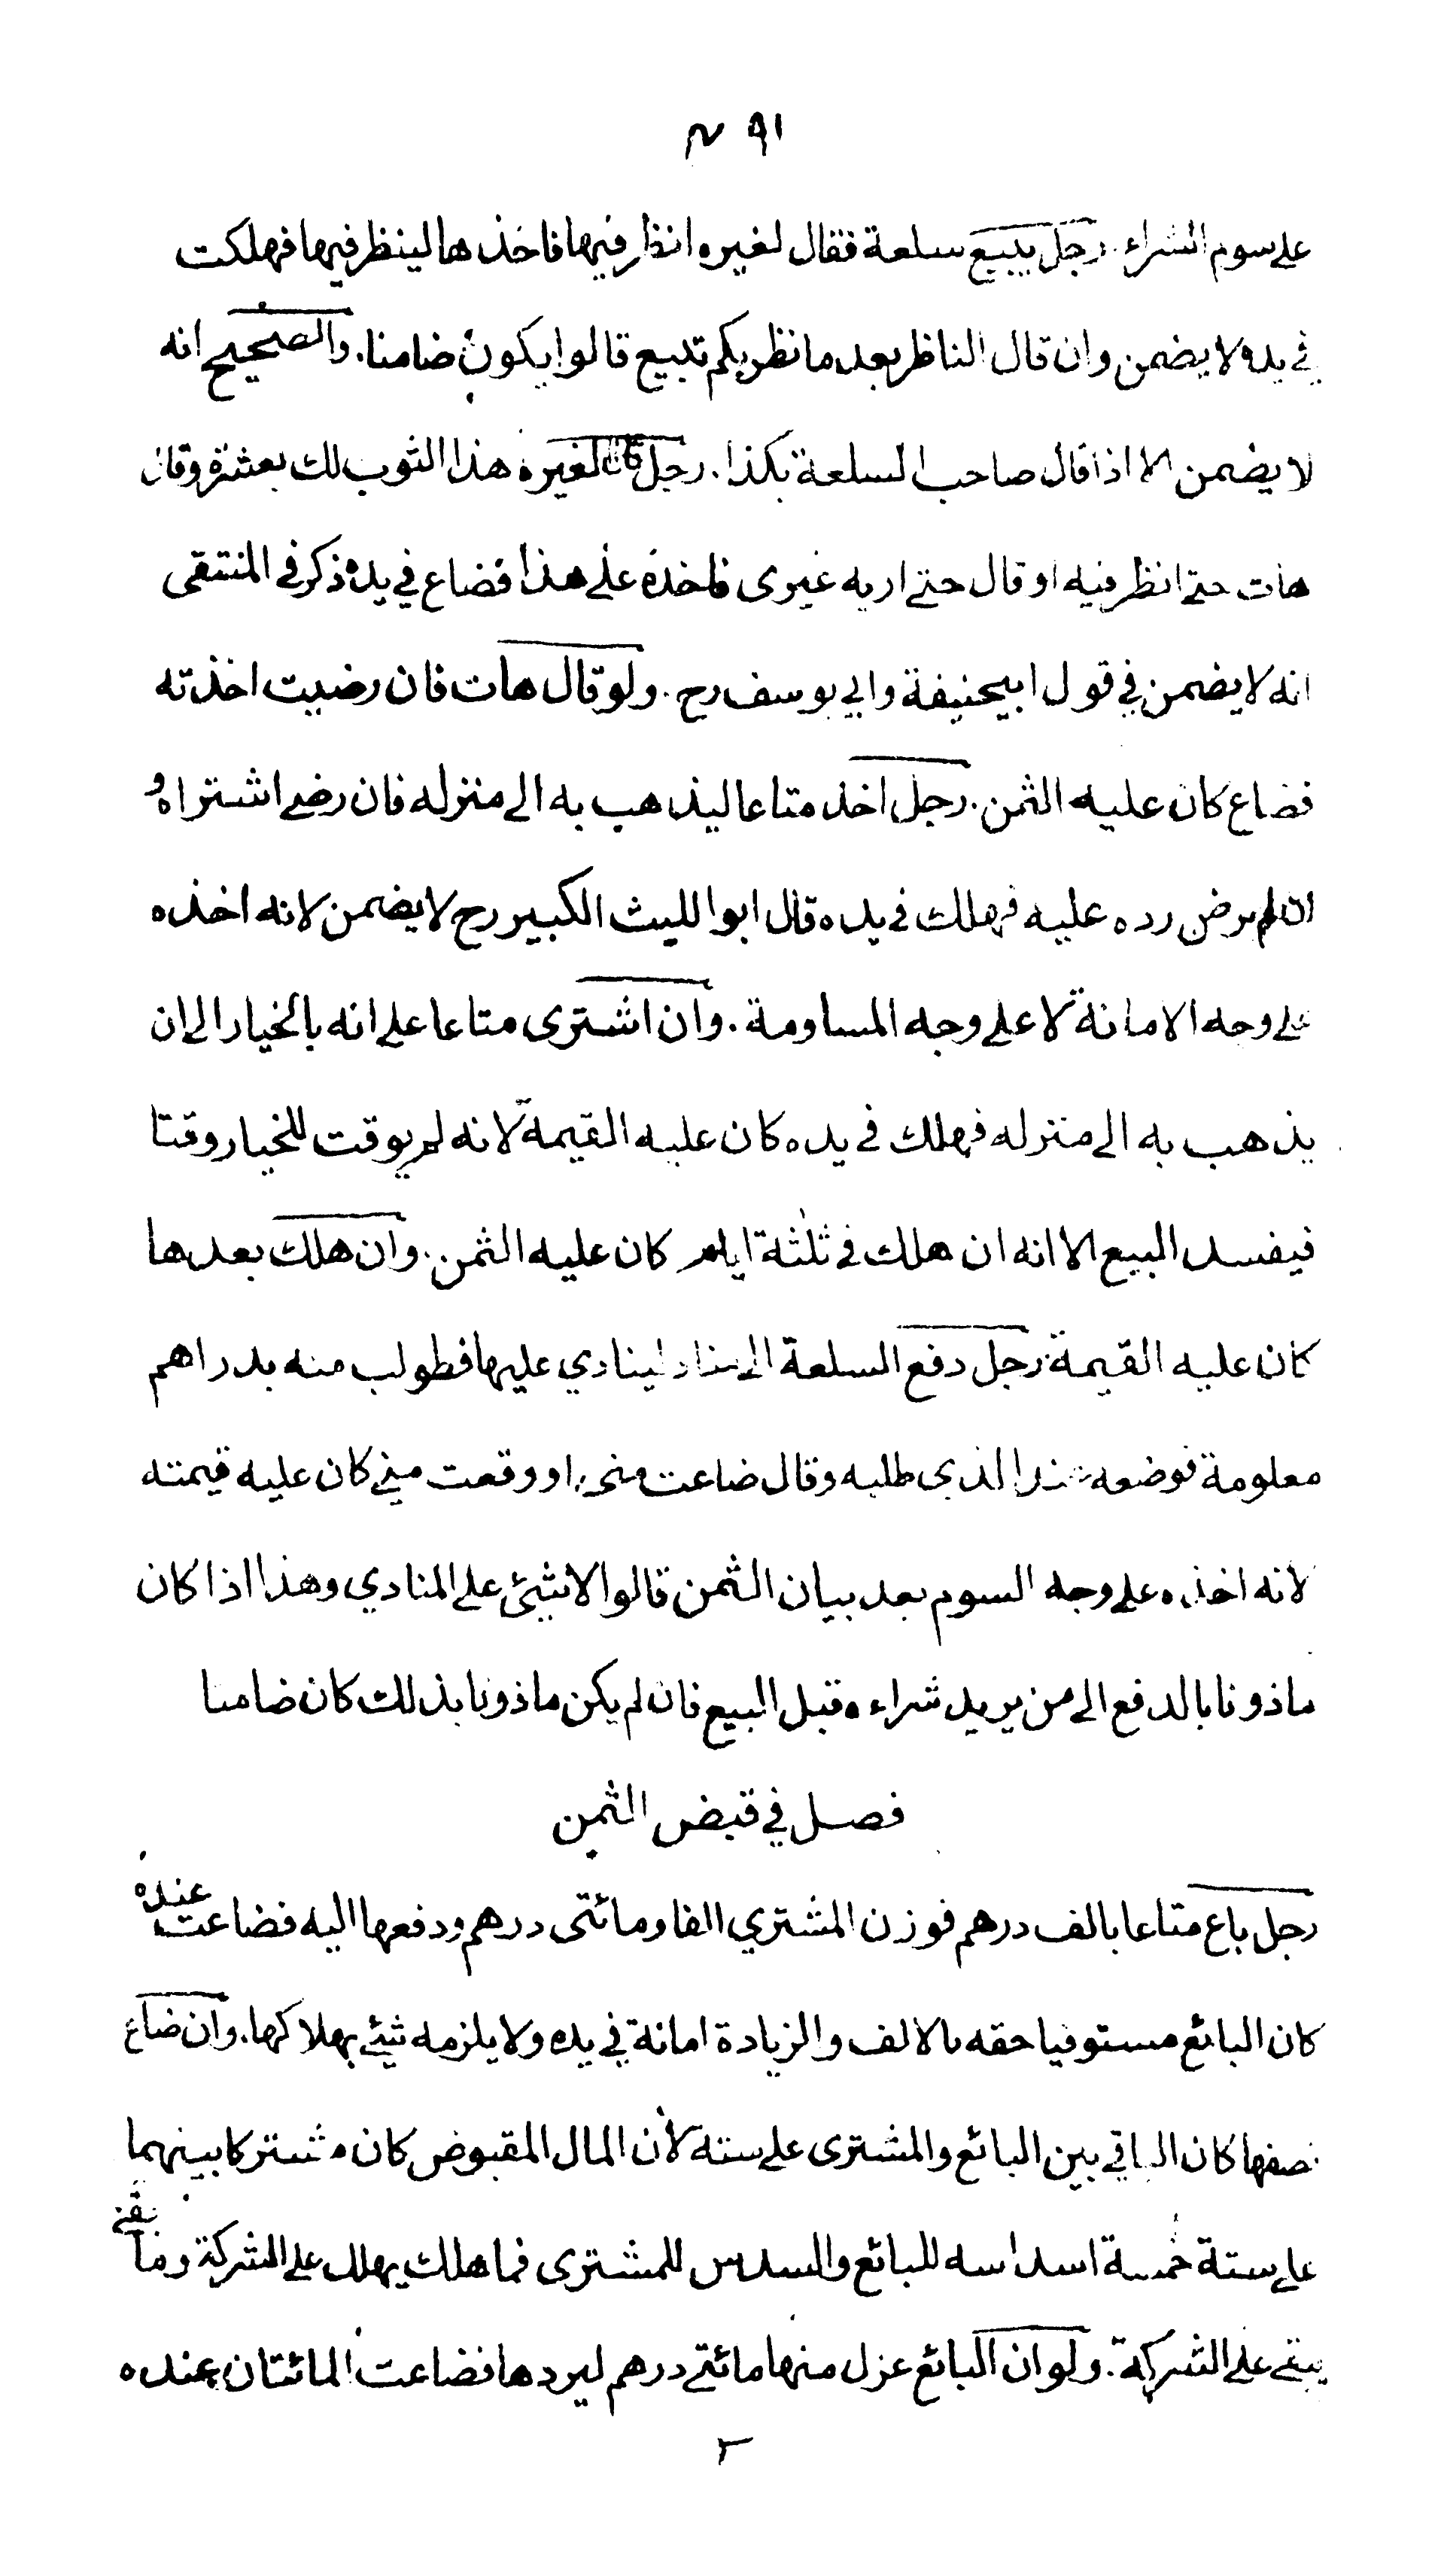 ٩١ ٣
على سوم الشراء. رجل يبيع سلعة فقال لغيره انظر فيها فاخذها لينظر فيها فهلكت
في يده لا يضمن وان قال الناظر بعد ما نظر بكم تبيع قالوا يكون ضامنا. والصحيح انه
لا يضمن الا اذا قال صاحب السلعة بكذا. رجل قال لغيره هذا الثوب لك بعشرة وقال
هات حتى انظر فيه او قال حتى اريه غيرى فاخذه على هذا فضاع في يده ذكر في المنتقى
انه لا يضمن في قول ابيحنيفة وابي يوسف رح. ولو قال هات فان رضيت اخذته
فضاع كان عليه الثمن. رجل اخذ متاعا ليذهب به الى منزله فان رضى اشتراه و
ان لم يرض رده عليه فهلك في يده قال ابو الليث الكبير رح لا يضمن لانه اخذه
على وجه الامانة لا على وجه المساومة. وان اشترى متاعا على انه بالخيار الى ان
يذهب به الى منزله فهلك في يده كان عليه القيمة لانه لم يوقت للخيار وقتا
فيفسد البيع الا انه ان هلك في ثلثة ايام كان عليه الثمن. وان هلك بعدها
كان عليه القيمة. رجل دفع السلعة الى مناد لينادي عليها فطولب منه بدراهم
معلومة فوضعه عند الذى طلبه وقال ضاعت منى او وقعت منى كان عليه قيمته
لانه اخذه على وجه السوم بعد بيان الثمن قالوا لا شيئ على المنادي وهذا اذا كان
ماذونا بالدفع الى من يريد شراءه قبل البيع فان لم يكن ماذونا بذلك كان ضامنا
فصل في قبض الثمن
رجل باع متاعا بالف درهم فوزن المشتري الفا ومائتى درهم ودفعها اليه فضاعت عنده
كان البائع مستوفيا حقه بالالف والزيادة امانة في يده ولا يلزمه شيئ بهلاكها. وان ضاع
نصفها كان الباقي بين البائع والمشترى على ستة لأن المال المقبوض كان مشتركا بينهما
على ستة خمسة اسداسه للبائع والسدس للمشترى فما هلك يهلك على الشركة وما بقى
يبقى على الشركة. ولو ان البائع عزل منها مائتى درهم ليردها فضاعت المائتان عنده